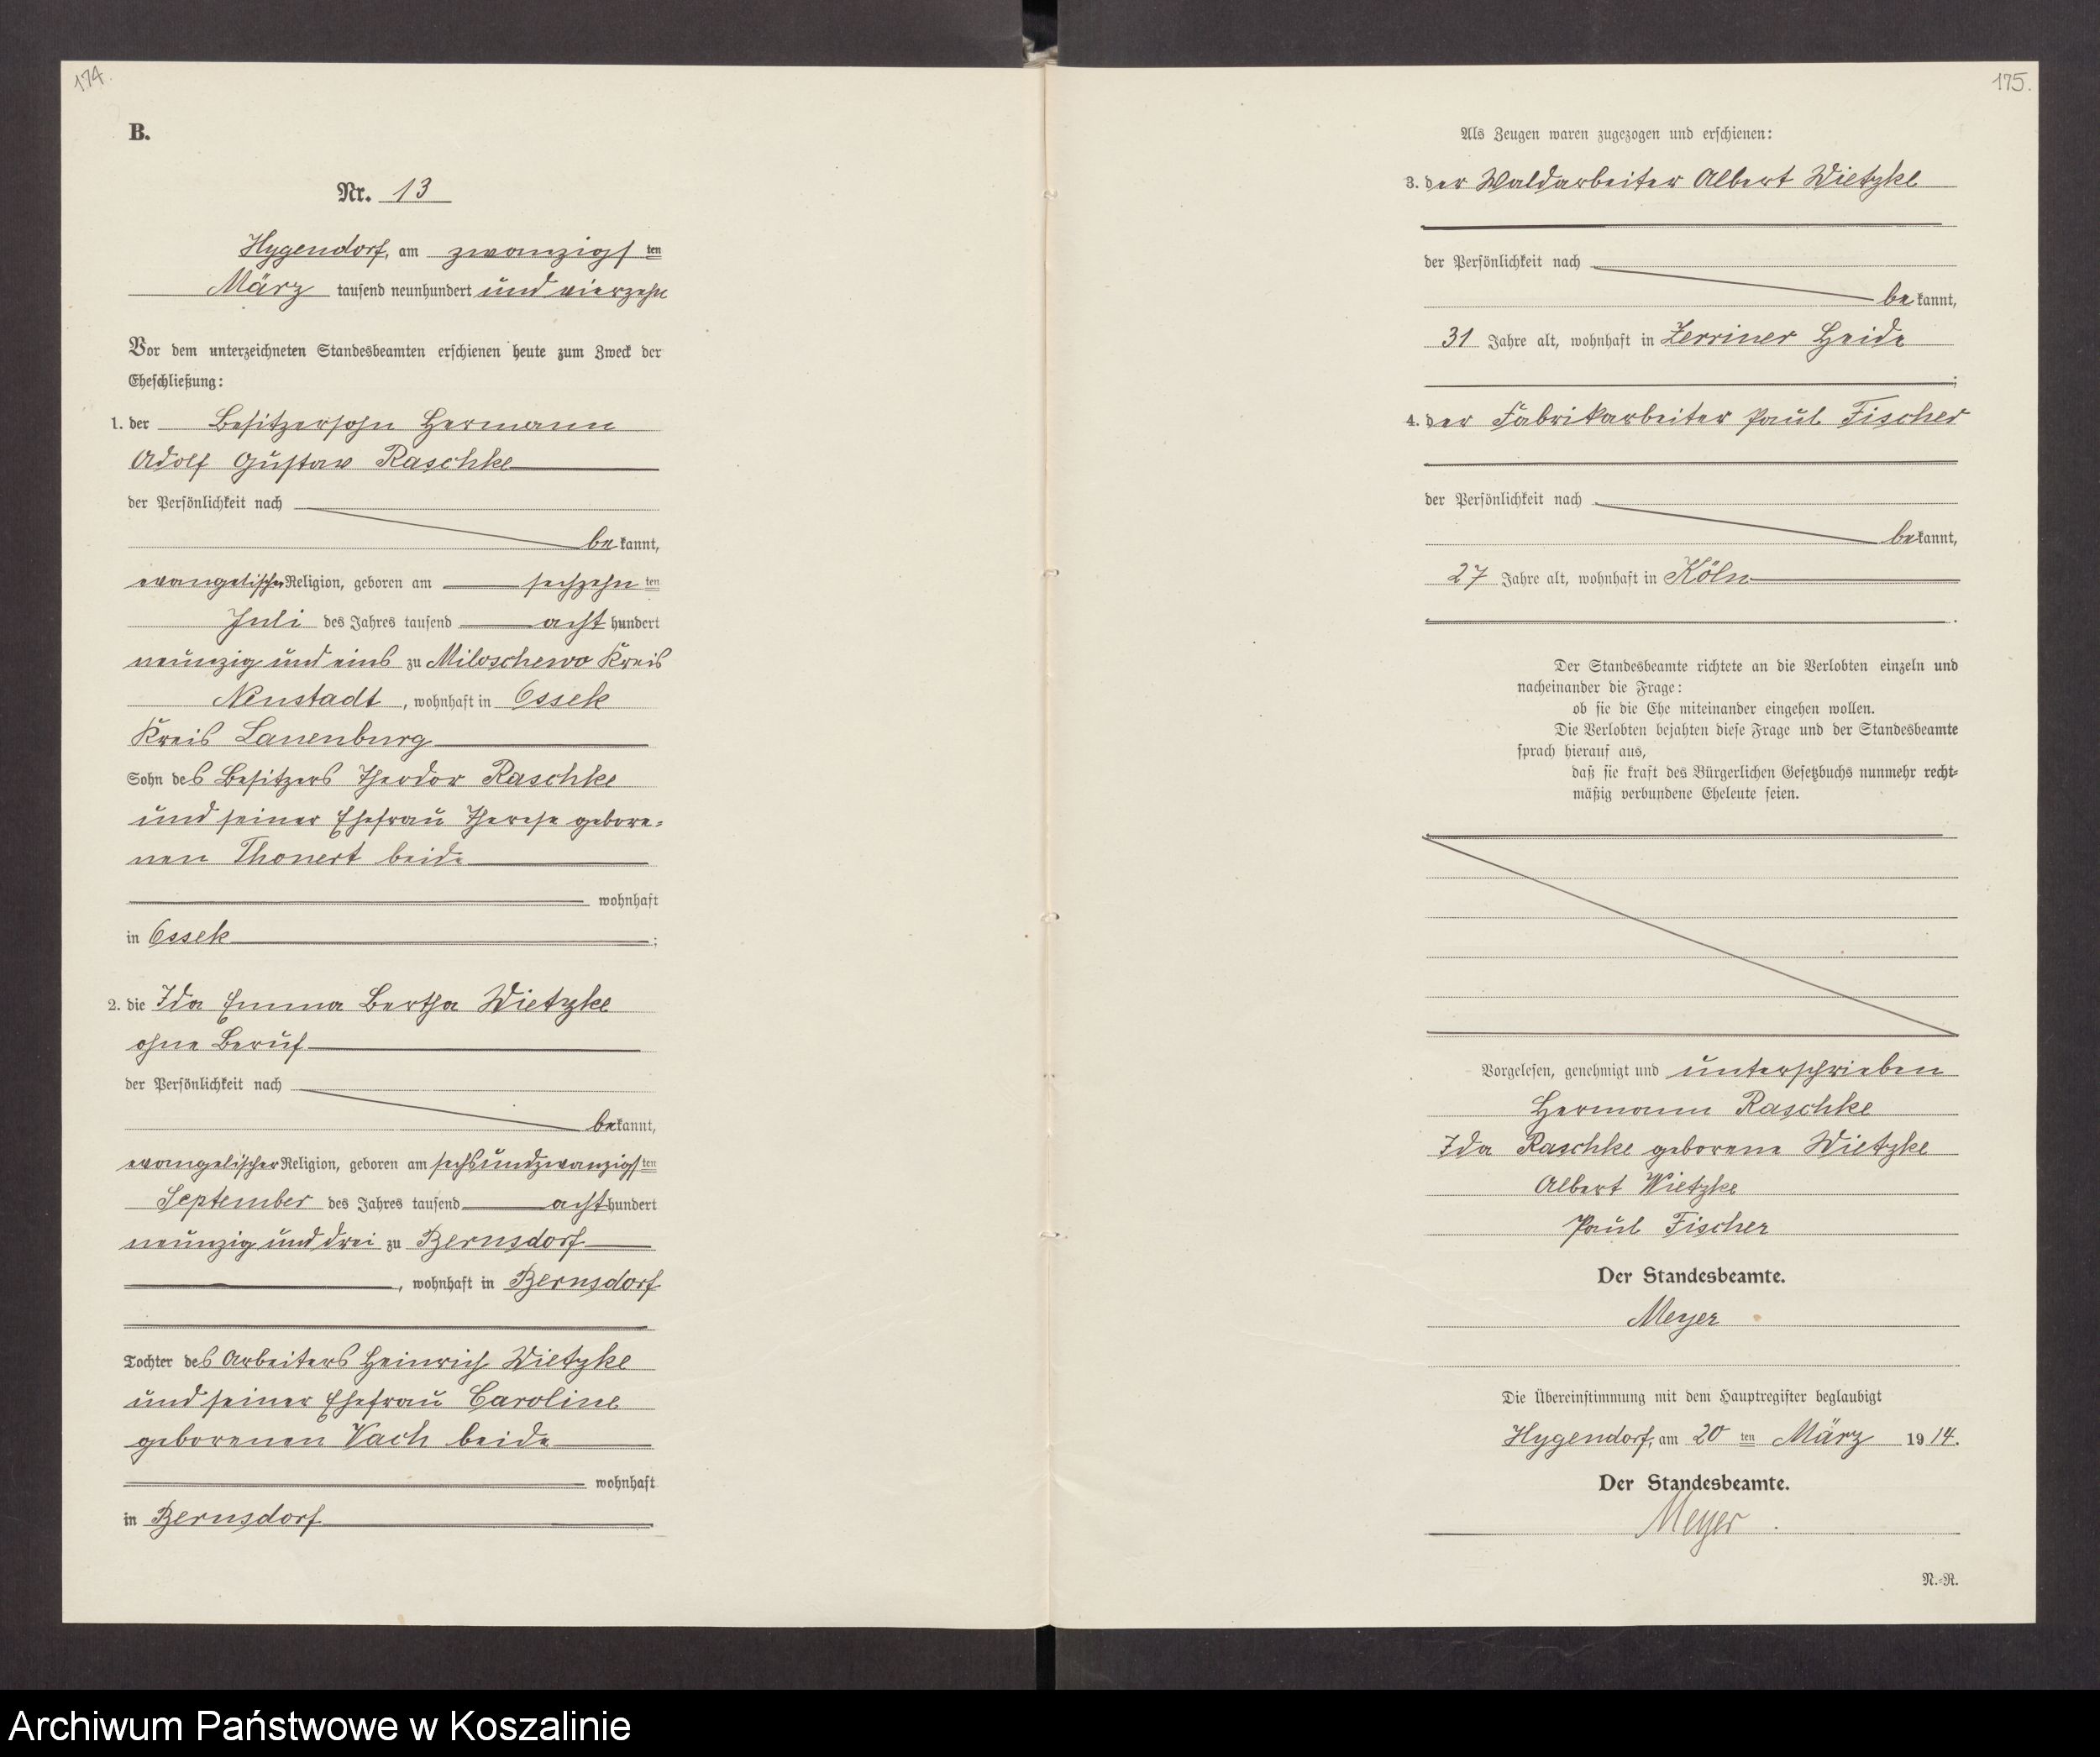 174.
B.
Nr. 13
Hygendorf, am zwanzigsten
März tausend neunhundert und vierzehn
Vor dem unterzeichneten Standesbeamten erschienen heute zum Zweck der
Eheschließung:
1. der Besitzersohn Hermann
Adolf Gustav Raschke
der Persönlichkeit nach
bekannt,
evangelischer Religion, geboren am sechzehnten
Juli des Jahres tausend acht hundert
neunzig und eins zu Miloschewo Kreis
Neustadt, wohnhaft in Ossek
Kreis Lauenburg
Sohn des Besitzers Theodor Raschke
und seiner Ehefrau Therese gebore-
nen Thonert beide
wohnhaft
in Ossek;
2. die Ida Emma Bertha Wietzke
ohne Beruf
der Persönlichkeit nach
bekannt,
evangelischer Religion, geboren am sechsundzwanzigsten
September des Jahres tausend acht hundert
neunzig und drei zu Bernsdorf
, wohnhaft in Bernsdorf
Tochter des Arbeiters Heinrich Wietzke
und seiner Ehefrau Caroline
geborenen Vach beide
wohnhaft
in Bernsdorf
175.
Als Zeugen waren zugezogen und erschienen:
3. der Waldarbeiter Albert Wietzke
der Persönlichkeit nach
bekannt,
31 Jahre alt, wohnhaft in Zerriner Heide
;
4. der Fabrikarbeiter Paul Fischer
der Persönlichkeit nach
bekannt,
27 Jahre alt, wohnhaft in Köln
.
Der Standesbeamte richtete an die Verlobten einzeln und
nacheinander die Frage:
ob sie die Ehe miteinander eingehen wollen.
Die Verlobten bejahten diese Frage und der Standesbeamte
sprach hierauf aus,
daß sie kraft des Bürgerlichen Gesetzbuchs nunmehr recht-
mäßig verbundene Eheleute seien.
Vorgelesen, genehmigt und unterschrieben
Hermann Raschke
Ida Raschke geborene Wietzke
Albert Wietzke
Paul Fischer
Der Standesbeamte.
Meyer
Die Übereinstimmung mit dem Hauptregister beglaubigt
Hygendorf, am 20 ten März 1914.
Der Standesbeamte.
Meyer.
N.-R.
Archiwum Państwowe w Koszalinie